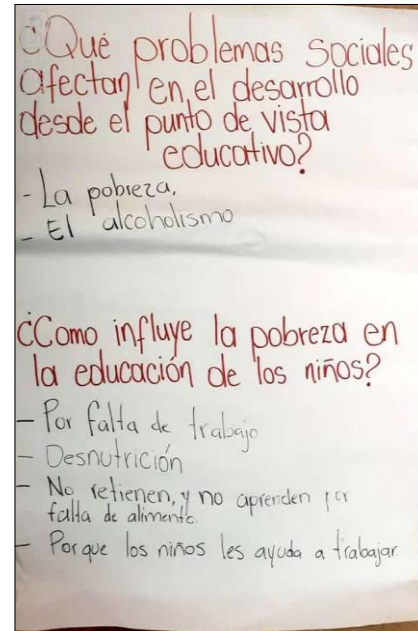 ¿Qué problemas Sociales
afectan en el desarrollo
desde el punto de vista
educativo?
- La pobreza,
- El alcoholismo
¿Como influye la pobreza en
la educación de los niños?
- Por falta de trabajo
- Desnutrición
- No retienen, y no aprenden por
falta de alimento.
- Porque los niños les ayuda a trabajar.